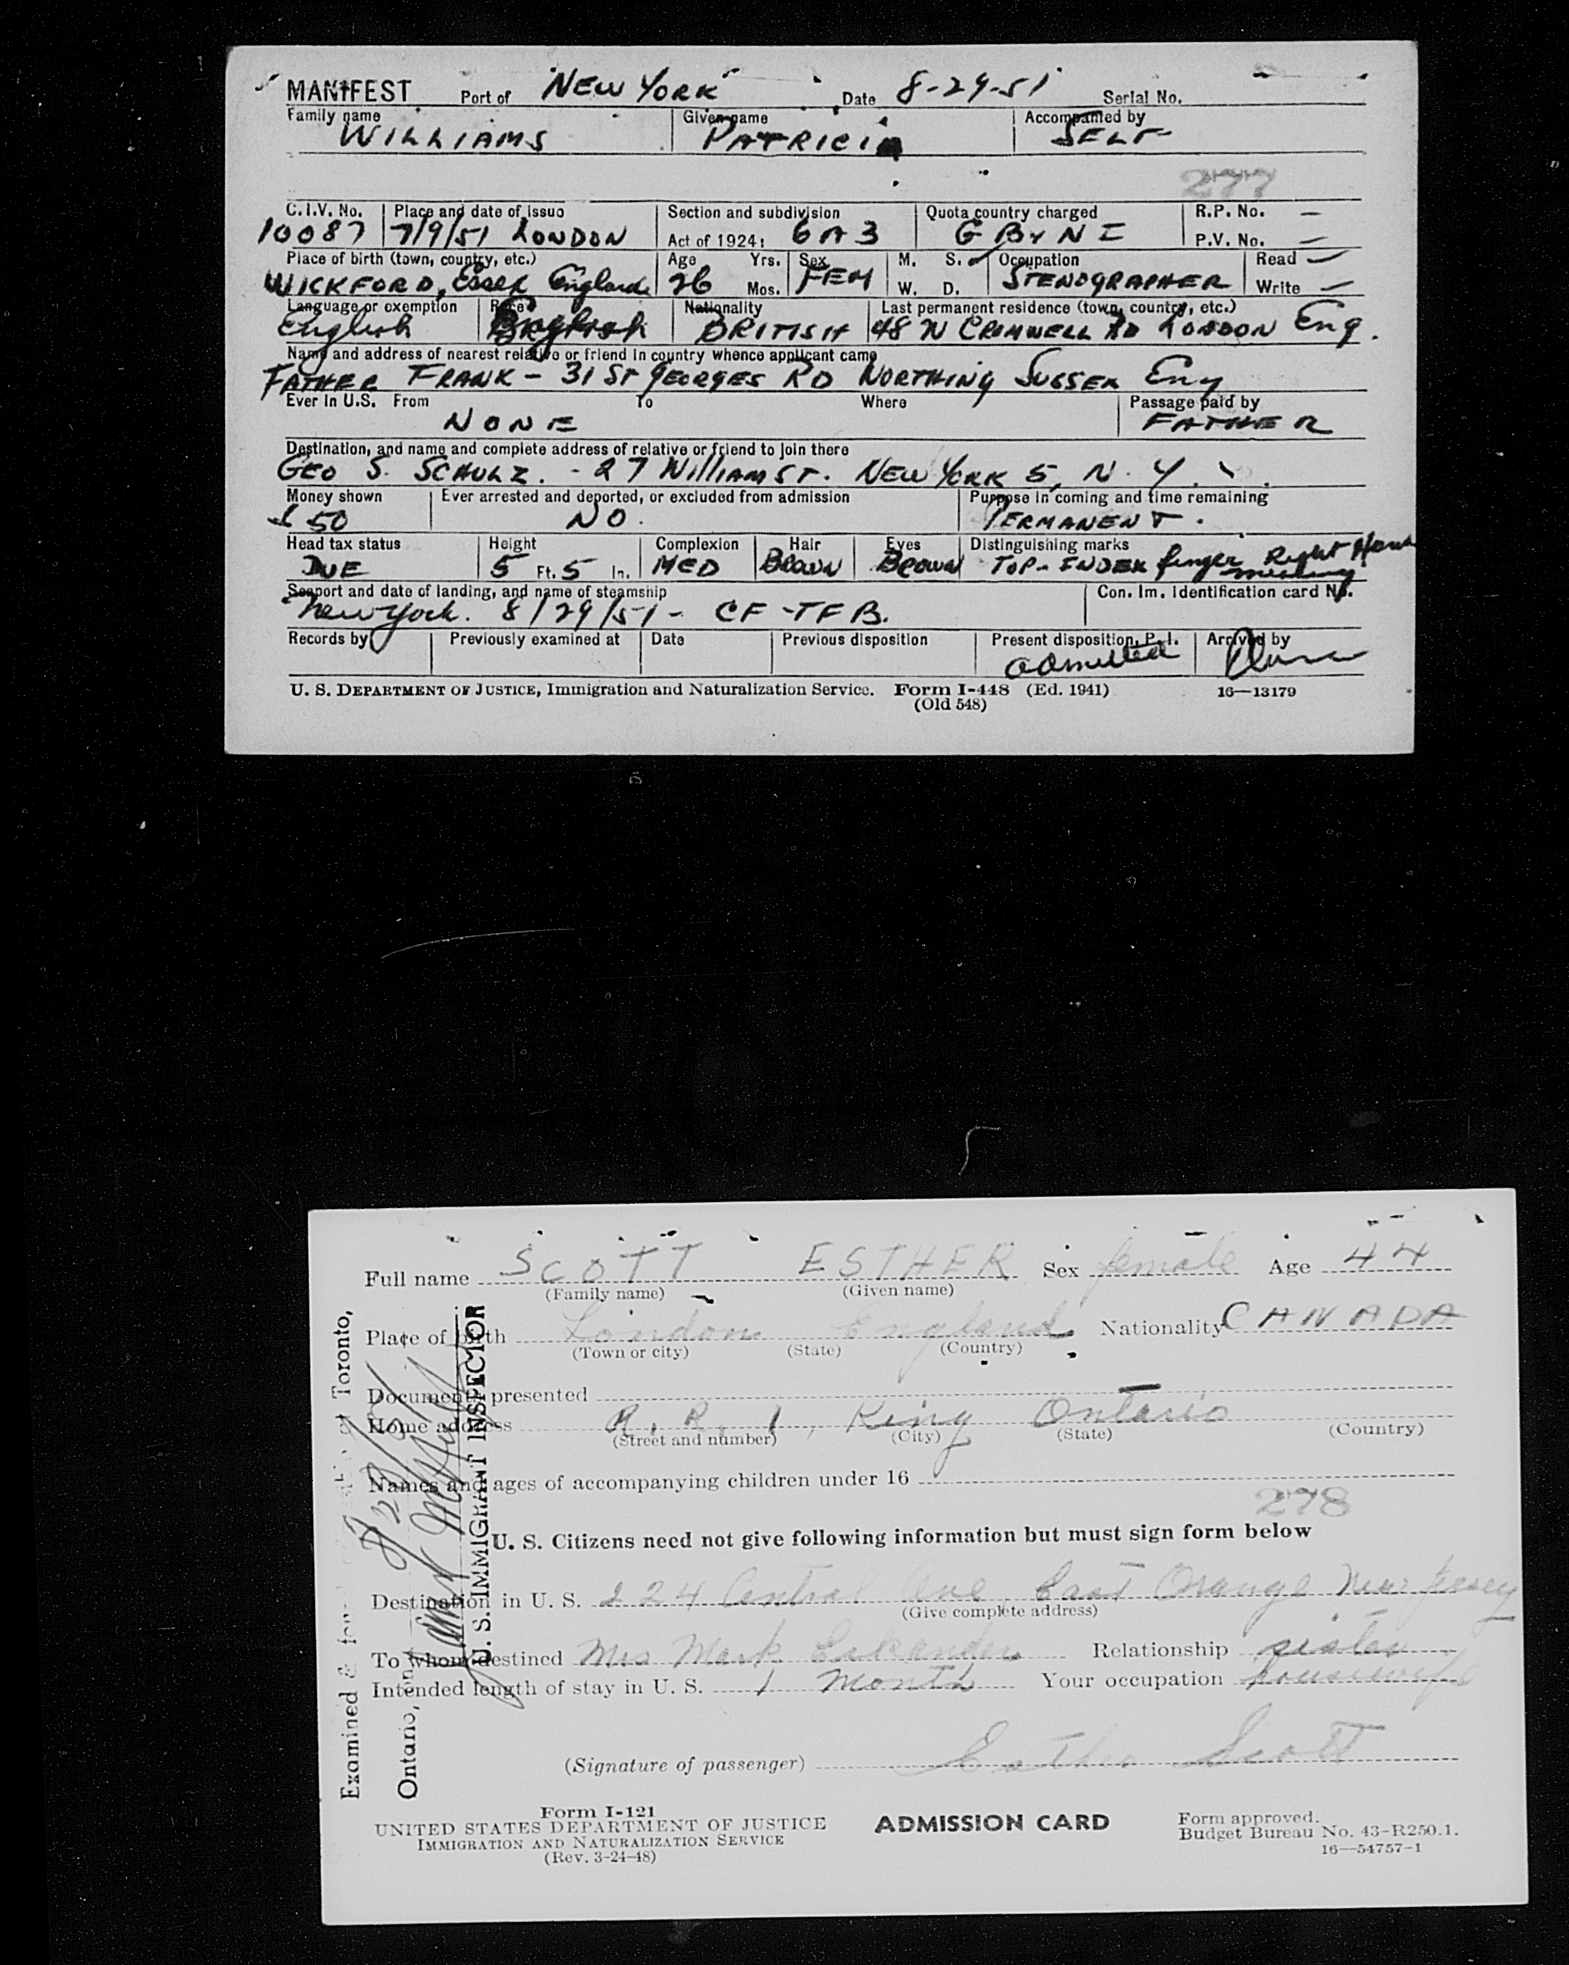 MANIFEST Port of NEW YORK Date 8-29-51 Serial No.
Family name Given name Accompanied by
WILLIAMS PATRICIA SELF
277
C.I.V. No. Place and date of issue Section and subdivision Quota country charged R.P. No. —
10087 7/9/51 LONDON Act of 1924: 6A3 G B & N I P.V. No. —
Place of birth (town, country, etc.) Age Yrs. Sex M. S. ✓ Occupation Read —
WICKFORD, Essex England 26 Mos. FEM W. D. STENOGRAPHER Write —
Language or exemption Race Nationality Last permanent residence (town, country, etc.)
English English BRITISH 48 N CROMWELL RD LONDON Eng.
Name and address of nearest relative or friend in country whence applicant came
FATHER FRANK - 31 ST GEORGES RD WORTHING SUSSEX Eng
Ever in U.S. From To Where Passage paid by
NONE FATHER
Destination, and name and complete address of relative or friend to join there
GEO S. SCHULZ. - 27 William ST. NEW YORK 5, N. Y.
Money shown Ever arrested and deported, or excluded from admission Purpose in coming and time remaining
50 NO. PERMANENT.
Head tax status Height Complexion Hair Eyes Distinguishing marks
DUE 5 Ft. 5 In. MED Brown Brown TOP-INDEX finger Right Hand missing
Seaport and date of landing, and name of steamship Con. Im. Identification card No.
New York. 8/29/51 - CF-TFB.
Records by Previously examined at Date Previous disposition Present disposition, P. I. Arrived by
admitted Plane
U. S. DEPARTMENT OF JUSTICE, Immigration and Naturalization Service. Form I-448 (Ed. 1941) 16—13179
(Old 548)
Full name SCOTT ESTHER Sex female Age 44
(Family name) (Given name)
Place of birth London England Nationality CANADA
(Town or city) (State) (Country)
Documents presented
Home address R. R. 1, King Ontario
(Street and number) (City) (State) (Country)
Names and ages of accompanying children under 16
278
U. S. Citizens need not give following information but must sign form below
Destination in U. S. 224 Central Ave East Orange New Jersey
(Give complete address)
To whom destined Mrs Mark Relationship sister
Intended length of stay in U. S. 1 Month Your occupation housewife
(Signature of passenger) Esther Scott
Form I-121
UNITED STATES DEPARTMENT OF JUSTICE
IMMIGRATION AND NATURALIZATION SERVICE
(Rev. 3-24-48)
ADMISSION CARD
Form approved.
Budget Bureau No. 43-R250.1.
16—54757-1
Examined & Toronto,
Ontario, on
U. S. IMMIGRANT INSPECTOR